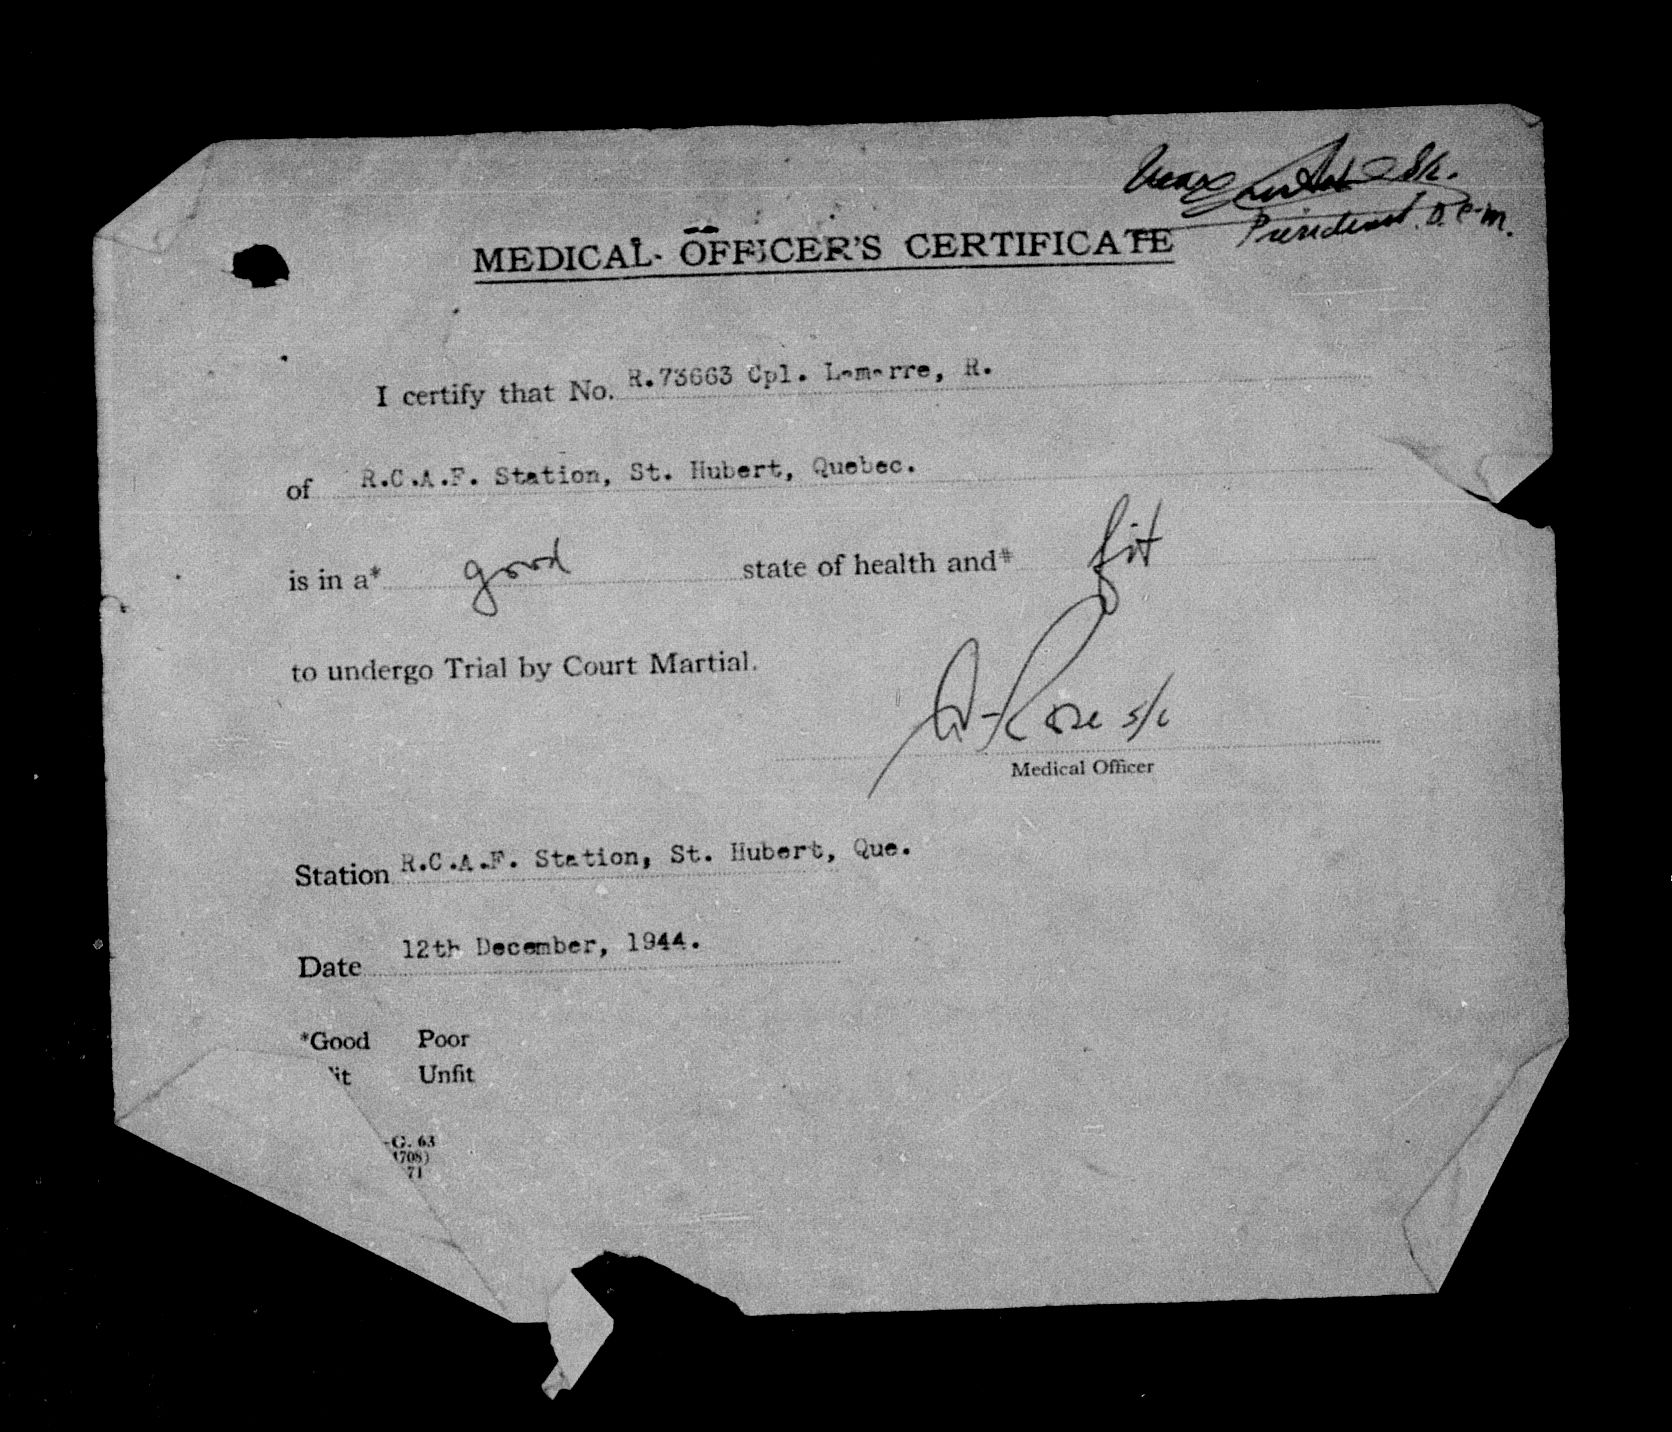 President. D.C.M.
MEDICAL OFFICER'S CERTIFICATE
I certify that No. R.73663 Cpl. Lamarre, R.
of R.C.A.F. Station, St. Hubert, Quebec.
is in a* good state of health and* fit
to undergo Trial by Court Martial.
Rose S/L
Medical Officer
Station R.C.A.F. Station, St. Hubert, Que.
Date 12th December, 1944.
*Good Poor
it Unfit
G. 63
1708)
71